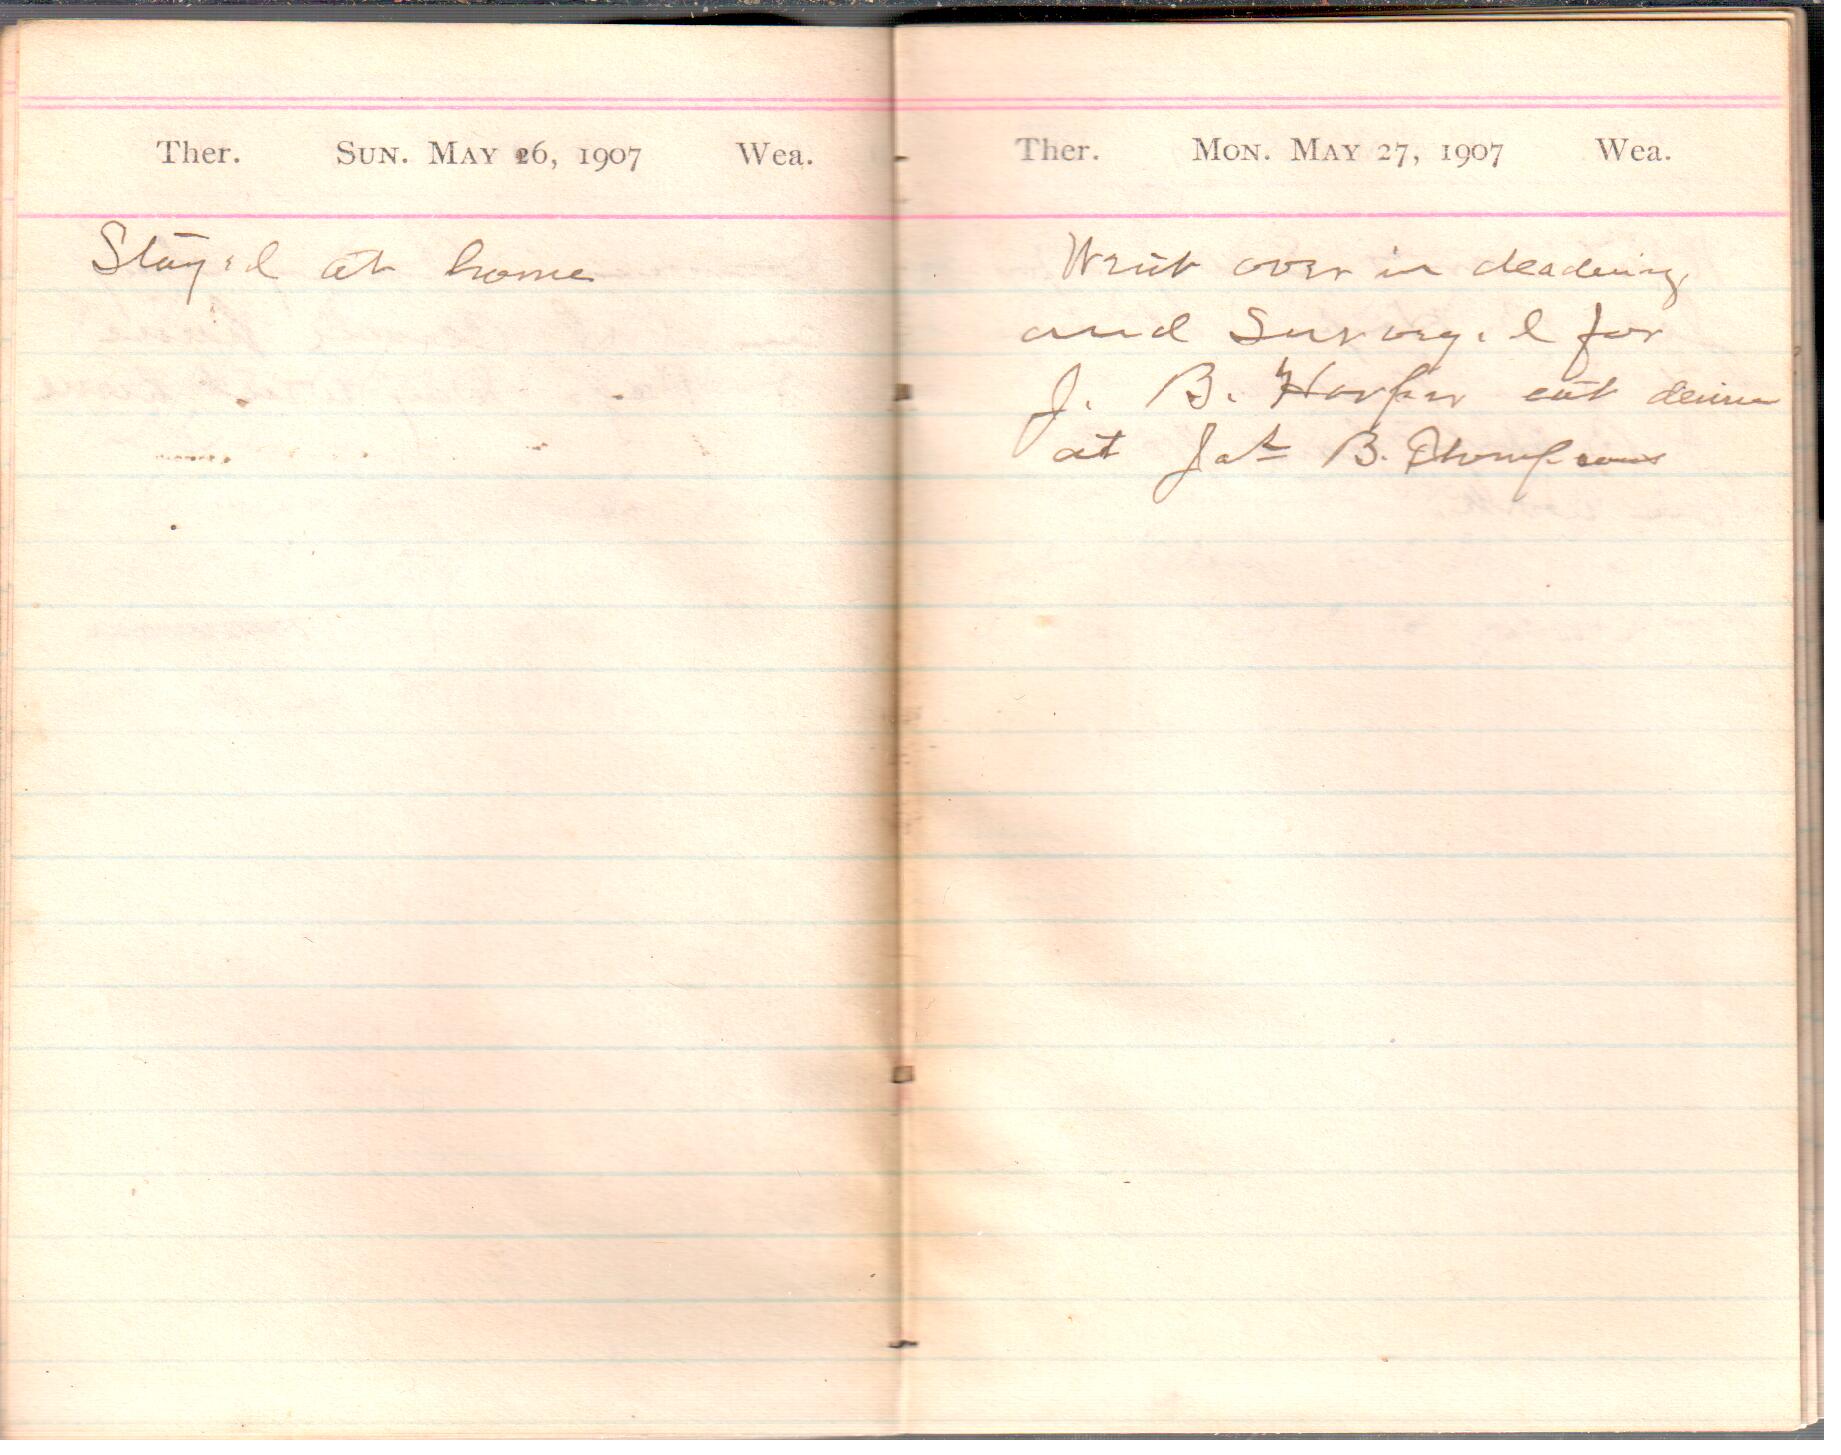 Ther. SUN. MAY 26, 1907 Wea.
Stayed at home
Ther. MON. MAY 27, 1907 Wea.
Went over in deadening
and Surveyed for
J. B. Harper eat dinner
at Jas B. Thompsons